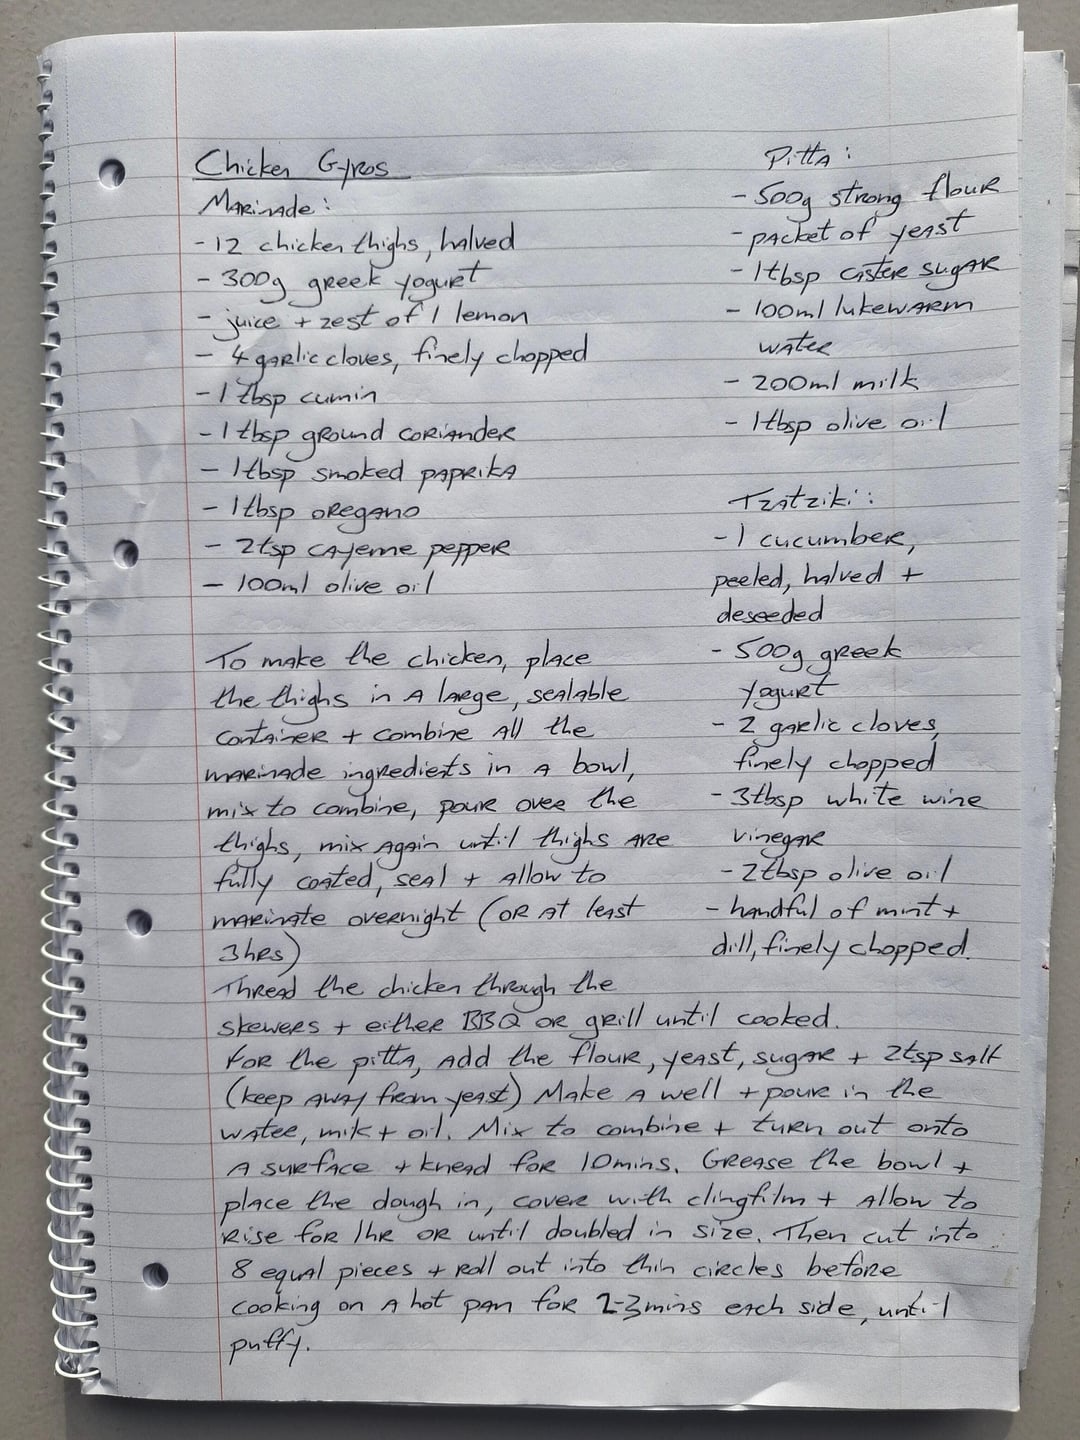 Chicken Gyros
Marinade:
- 12 chicken thighs, halved
- 300g greek yogurt
- juice + zest of 1 lemon
- 4 garlic cloves, finely chopped
- 1 tbsp cumin
- 1 tbsp ground coriander
- 1tbsp smoked paprika
- 1tbsp oregano
- 2tsp cayenne pepper
- 100ml olive oil
Pitta:
- 500g strong flour
- packet of yeast
- 1tbsp caster sugar
- 100ml lukewarm
water
- 200ml milk
- 1tbsp olive oil
Tzatziki:
- 1 cucumber,
peeled, halved +
deseeded
- 500g greek
yogurt
- 2 garlic cloves,
finely chopped
- 3tbsp white wine
vinegar
- 2tbsp olive oil
- handful of mint +
dill, finely chopped.
To make the chicken, place
the thighs in a large, sealable
container + combine all the
marinade ingredients in a bowl,
mix to combine, pour over the
thighs, mix again until thighs are
fully coated, seal + allow to
marinate overnight (or at least
3hrs)
Thread the chicken through the
skewers + either BBQ or grill until cooked.
For the pitta, add the flour, yeast, sugar + 2tsp salt
(keep away from yeast) Make a well + pour in the
water, milk + oil. Mix to combine + turn out onto
a surface + knead for 10mins. Grease the bowl +
place the dough in, cover with clingfilm + allow to
rise for 1hr or until doubled in size. Then cut into
8 equal pieces + roll out into thin circles before
cooking on a hot pan for 2-3mins each side, until
puffy.